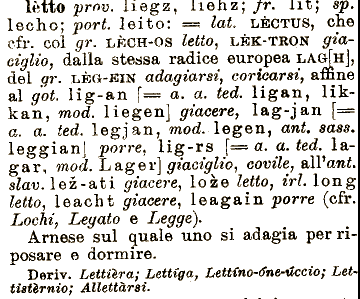 lètto prov. liegz, liehz; fr. lit; sp.
lecho; port. leito: = lat. LÈCTUS, che
cfr. col gr. LÈCH-OS letto, LÈK-TRON gia-
ciglio, dalla stessa radice europea LAG[H],
del gr. LÈG-EIN adagiarsi, coricarsi, affine
al got. lig-an [= a. a. ted. ligan, lik-
kan, mod. liegen] giacere, lag-jan [=
a. a. ted. legjan, mod. legen, ant. sass.
leggian] porre, lig-rs [= a. a. ted. la-
gar, mod. Lager] giaciglio, covile, all'ant.
slav. lež-ati giacere, lože letto, irl. long
letto, leacht giacere, leagain porre (cfr.
Lochi, Legato e Legge).
Arnese sul quale uno si adagia per ri-
posare e dormire.
Deriv. Lettièra; Lettiga, Lettíno-óne-úccio; Let-
tistèrnio; Allettàrsi.